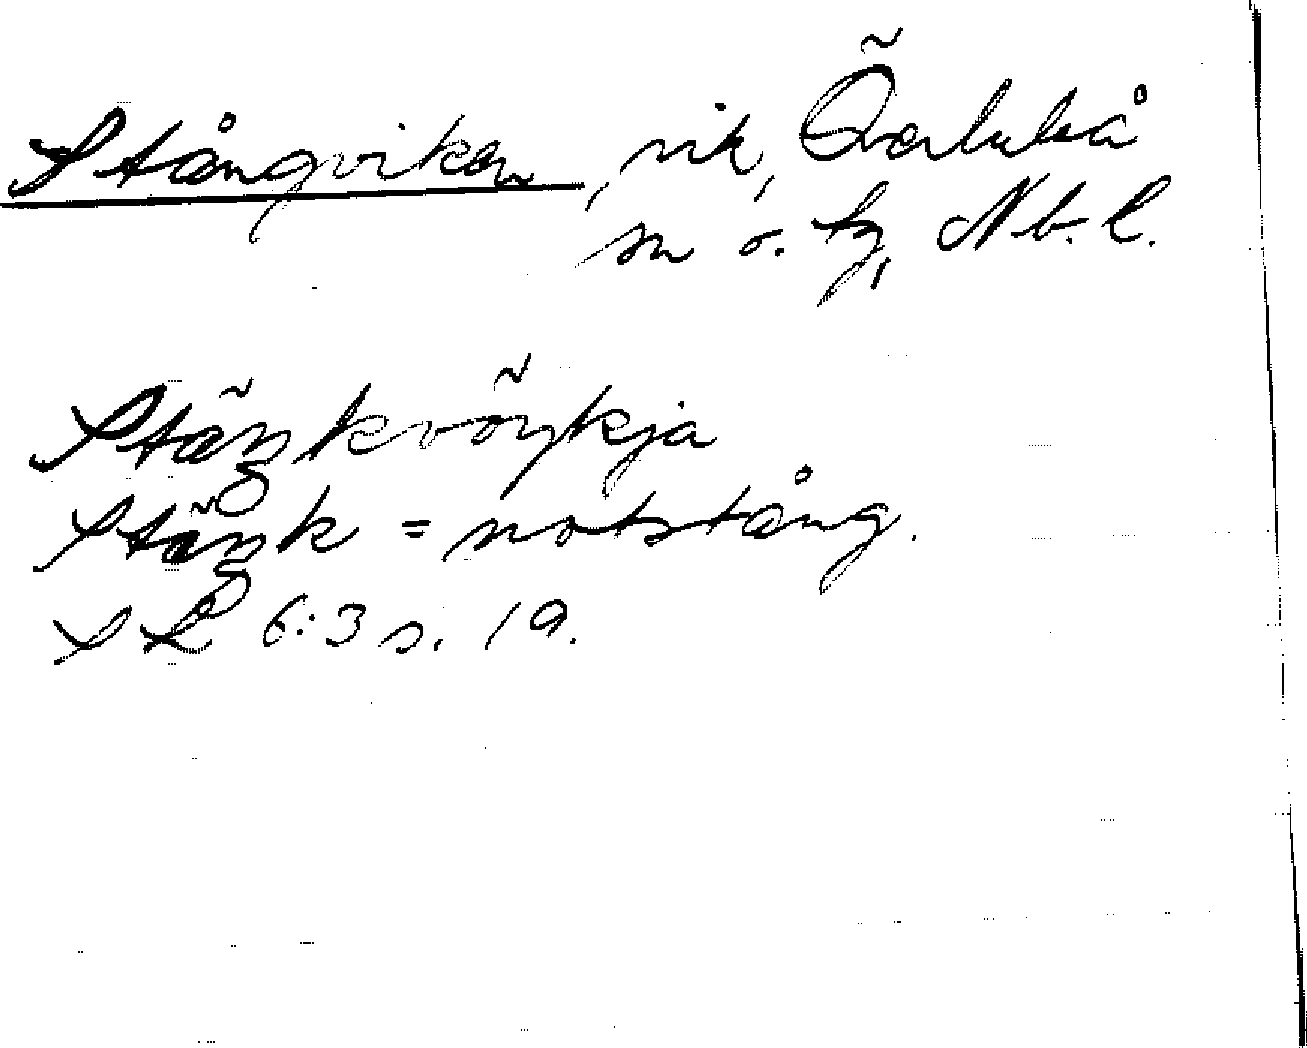 Stångviken, vik, Överluleå
sn o. tg, Nb. l.
Stäŋkvöykja
Stäŋk = notstång.
SL 6:3 s. 19.